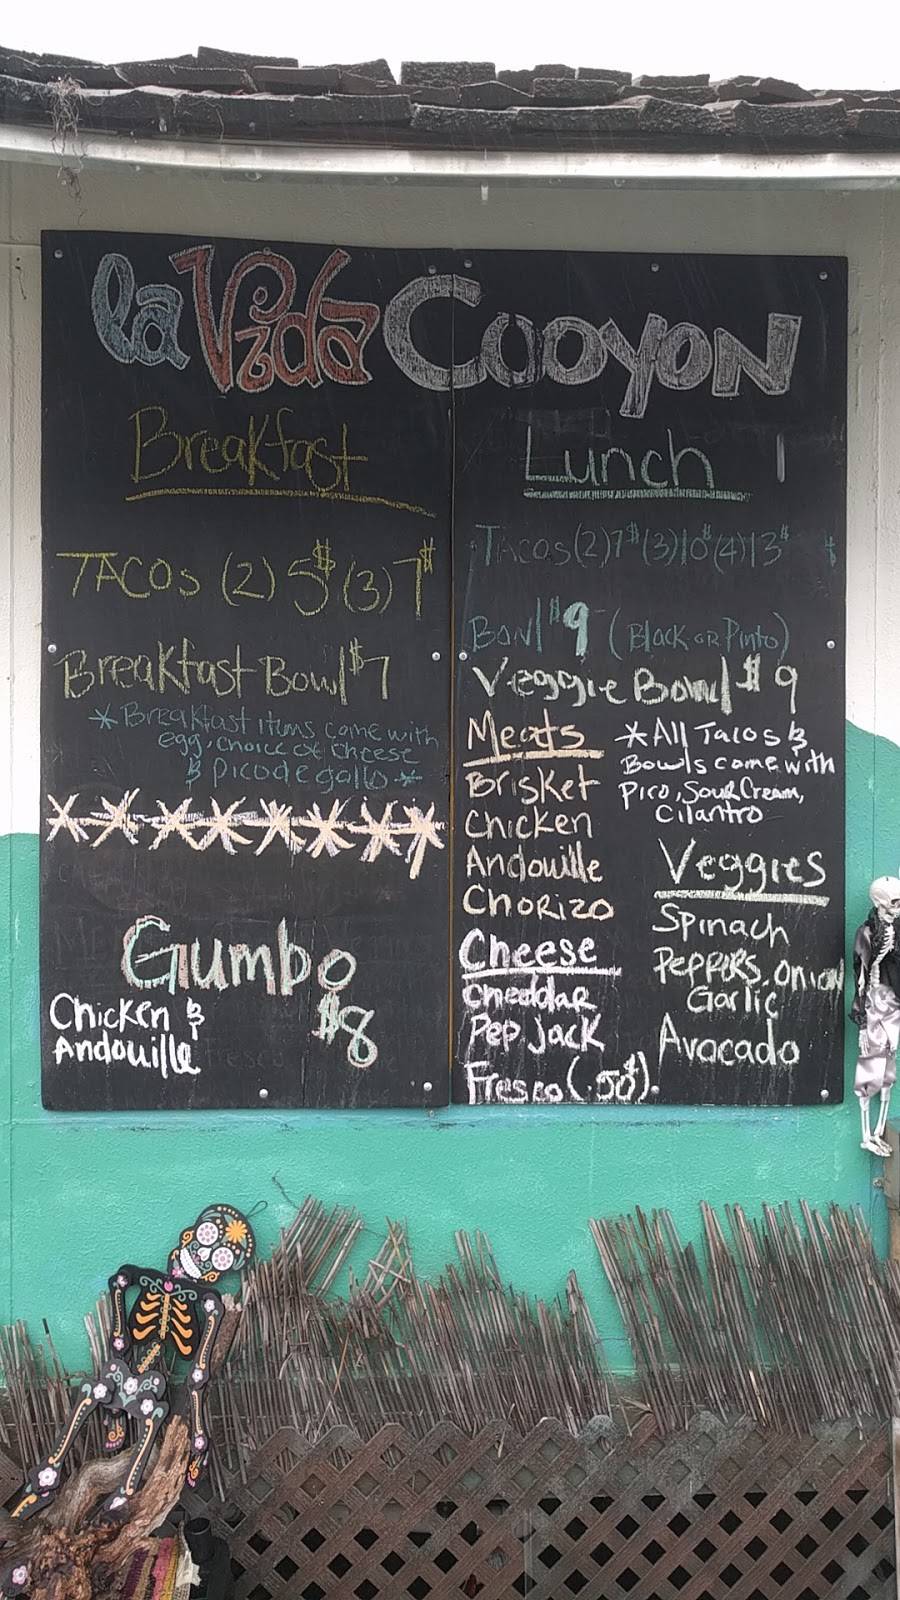 la Vida Cooyon
Breakfast
TACOS (2) 5$ (3) 7$
Breakfast Bowl $7
*Breakfast items come with
egg, choice of cheese
& pico de gallo *
Gumbo
Chicken &
Andouille
$8
Lunch
TACOS (2) 7$ (3) 10$ (4) 13$
Bowl $9 (Black OR Pinto)
Veggie Bowl $9
Meats
Brisket
Chicken
Andouille
CHORIZO
Cheese
Cheddar
Pep Jack
Fresco (.50$).
*All Tacos &
Bowls come with
Pico, Sour Cream,
Cilantro
Veggies
Spinach
Peppers, Onion
Garlic
Avocado